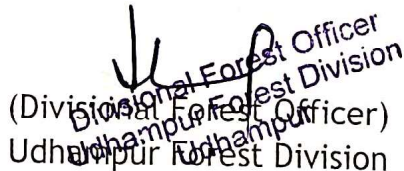 Divisional Forest Officer
Udhampur Forest Division
Udhampur
(Divisional Forest Officer)
Udhampur Forest Division